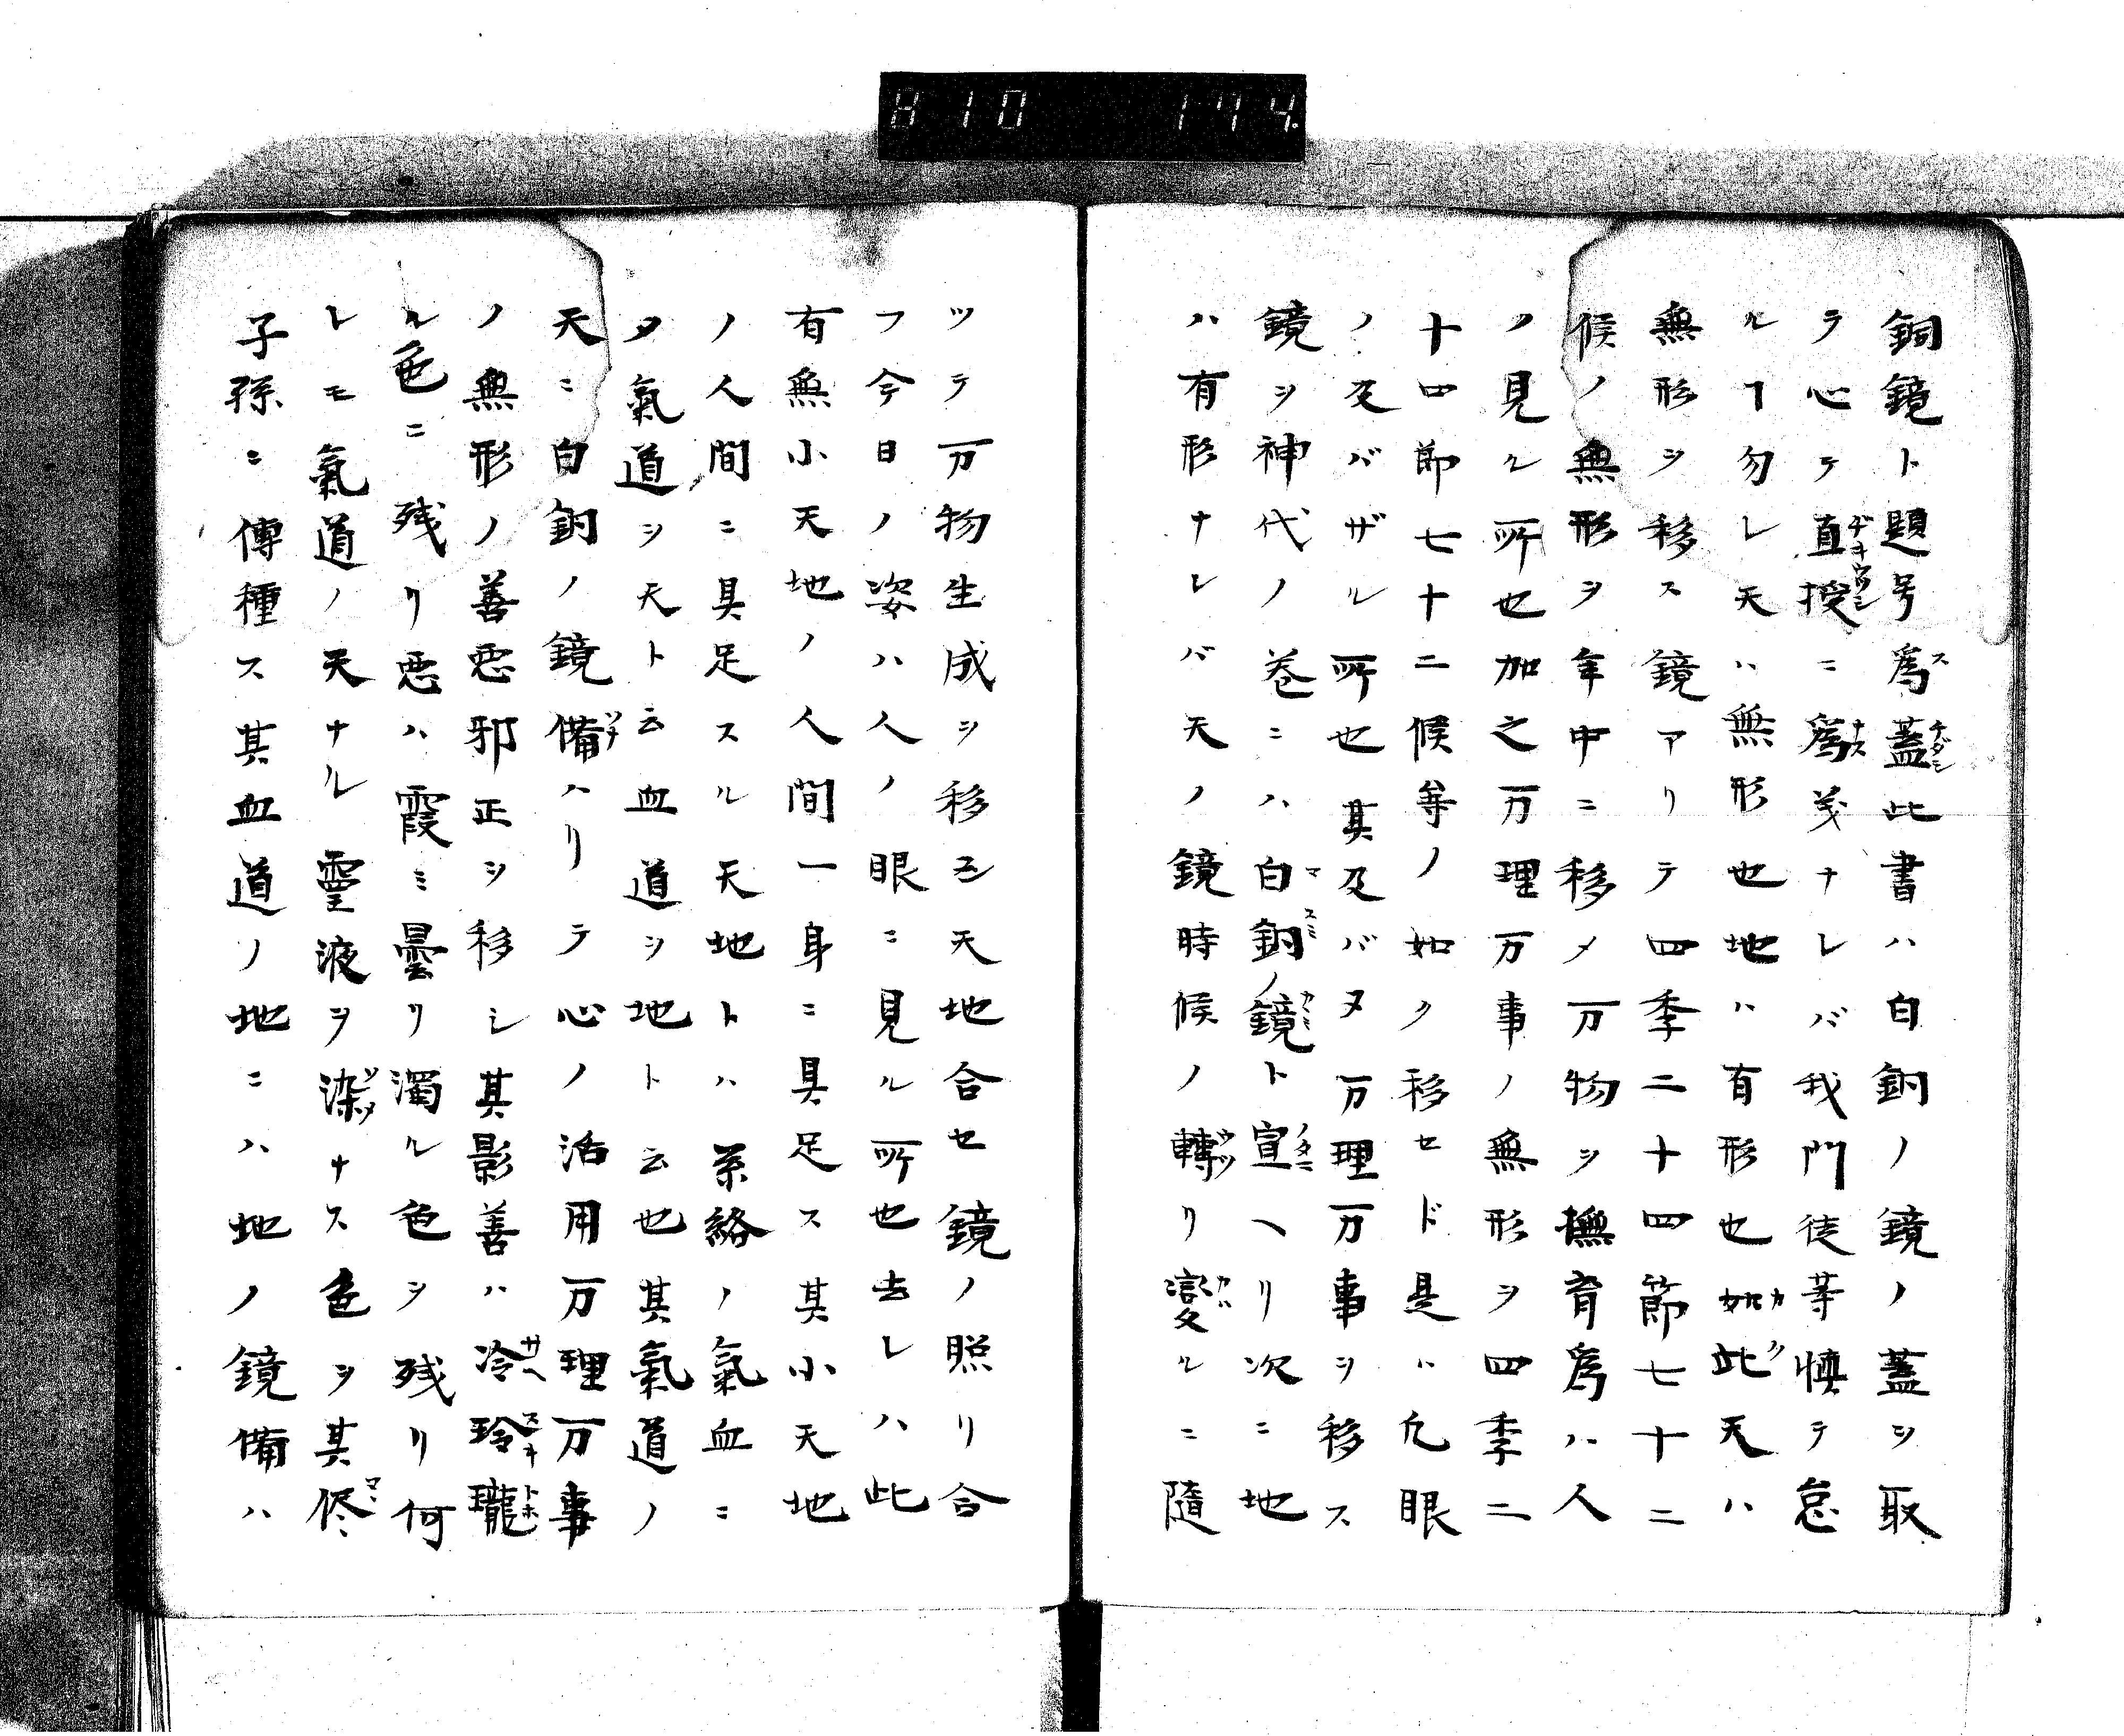 810 174.
銅鏡ト題号爲蓋此書ハ白銅ノ鏡ノ蓋ヲ取
テ心テ直授ニ爲義ナレバ我門徒等慎テ怠
ルヿ勿レ天ハ無形也地ハ有形也如此天ハ
無形ヲ移ス鏡アリテ四季二十四節七十二
候ノ無形ヲ年中ニ移メ万物ヲ撫育爲ハ人
ノ見ル所也加之万理万事ノ無形ヲ四季二
十四節七十二候等ノ如ク移セド是ハ凡眼
ノ及バザル所也其及バヌ万理万事ヲ移ス
鏡ヲ神代ノ巻ニハ白銅ノ鏡ト宣ヘリ次ニ地
ハ有形ナレバ天ノ鏡時候ノ轉リ變ルニ隨
ツテ万物生成シ移シ天地合セ鏡ノ照リ合
フ今日ノ姿ハ人ノ眼ニ見ル所也去レハ此
有無小天地ノ人間一身ニ具足ス其小天地
ノ人間ニ具足スル天地トハ系絡ノ氣血ニ
タ氣道ヲ天ト云血道ヲ地ト云也其氣道ノ
天ニ白銅ノ鏡備ハリテ心ノ活用万理万事
ノ無形ノ善悪邪正ヲ移シ其影善ハ冷玲瓏
ル色ニ残リ悪ハ霞ミ曇リ濁ル色ヲ残リ何
レモ氣道ノ天ナル靈液ヲ染ナス色ヲ其侭
子孫ニ傳種ス其血道ノ地ニハ地ノ鏡備ハ